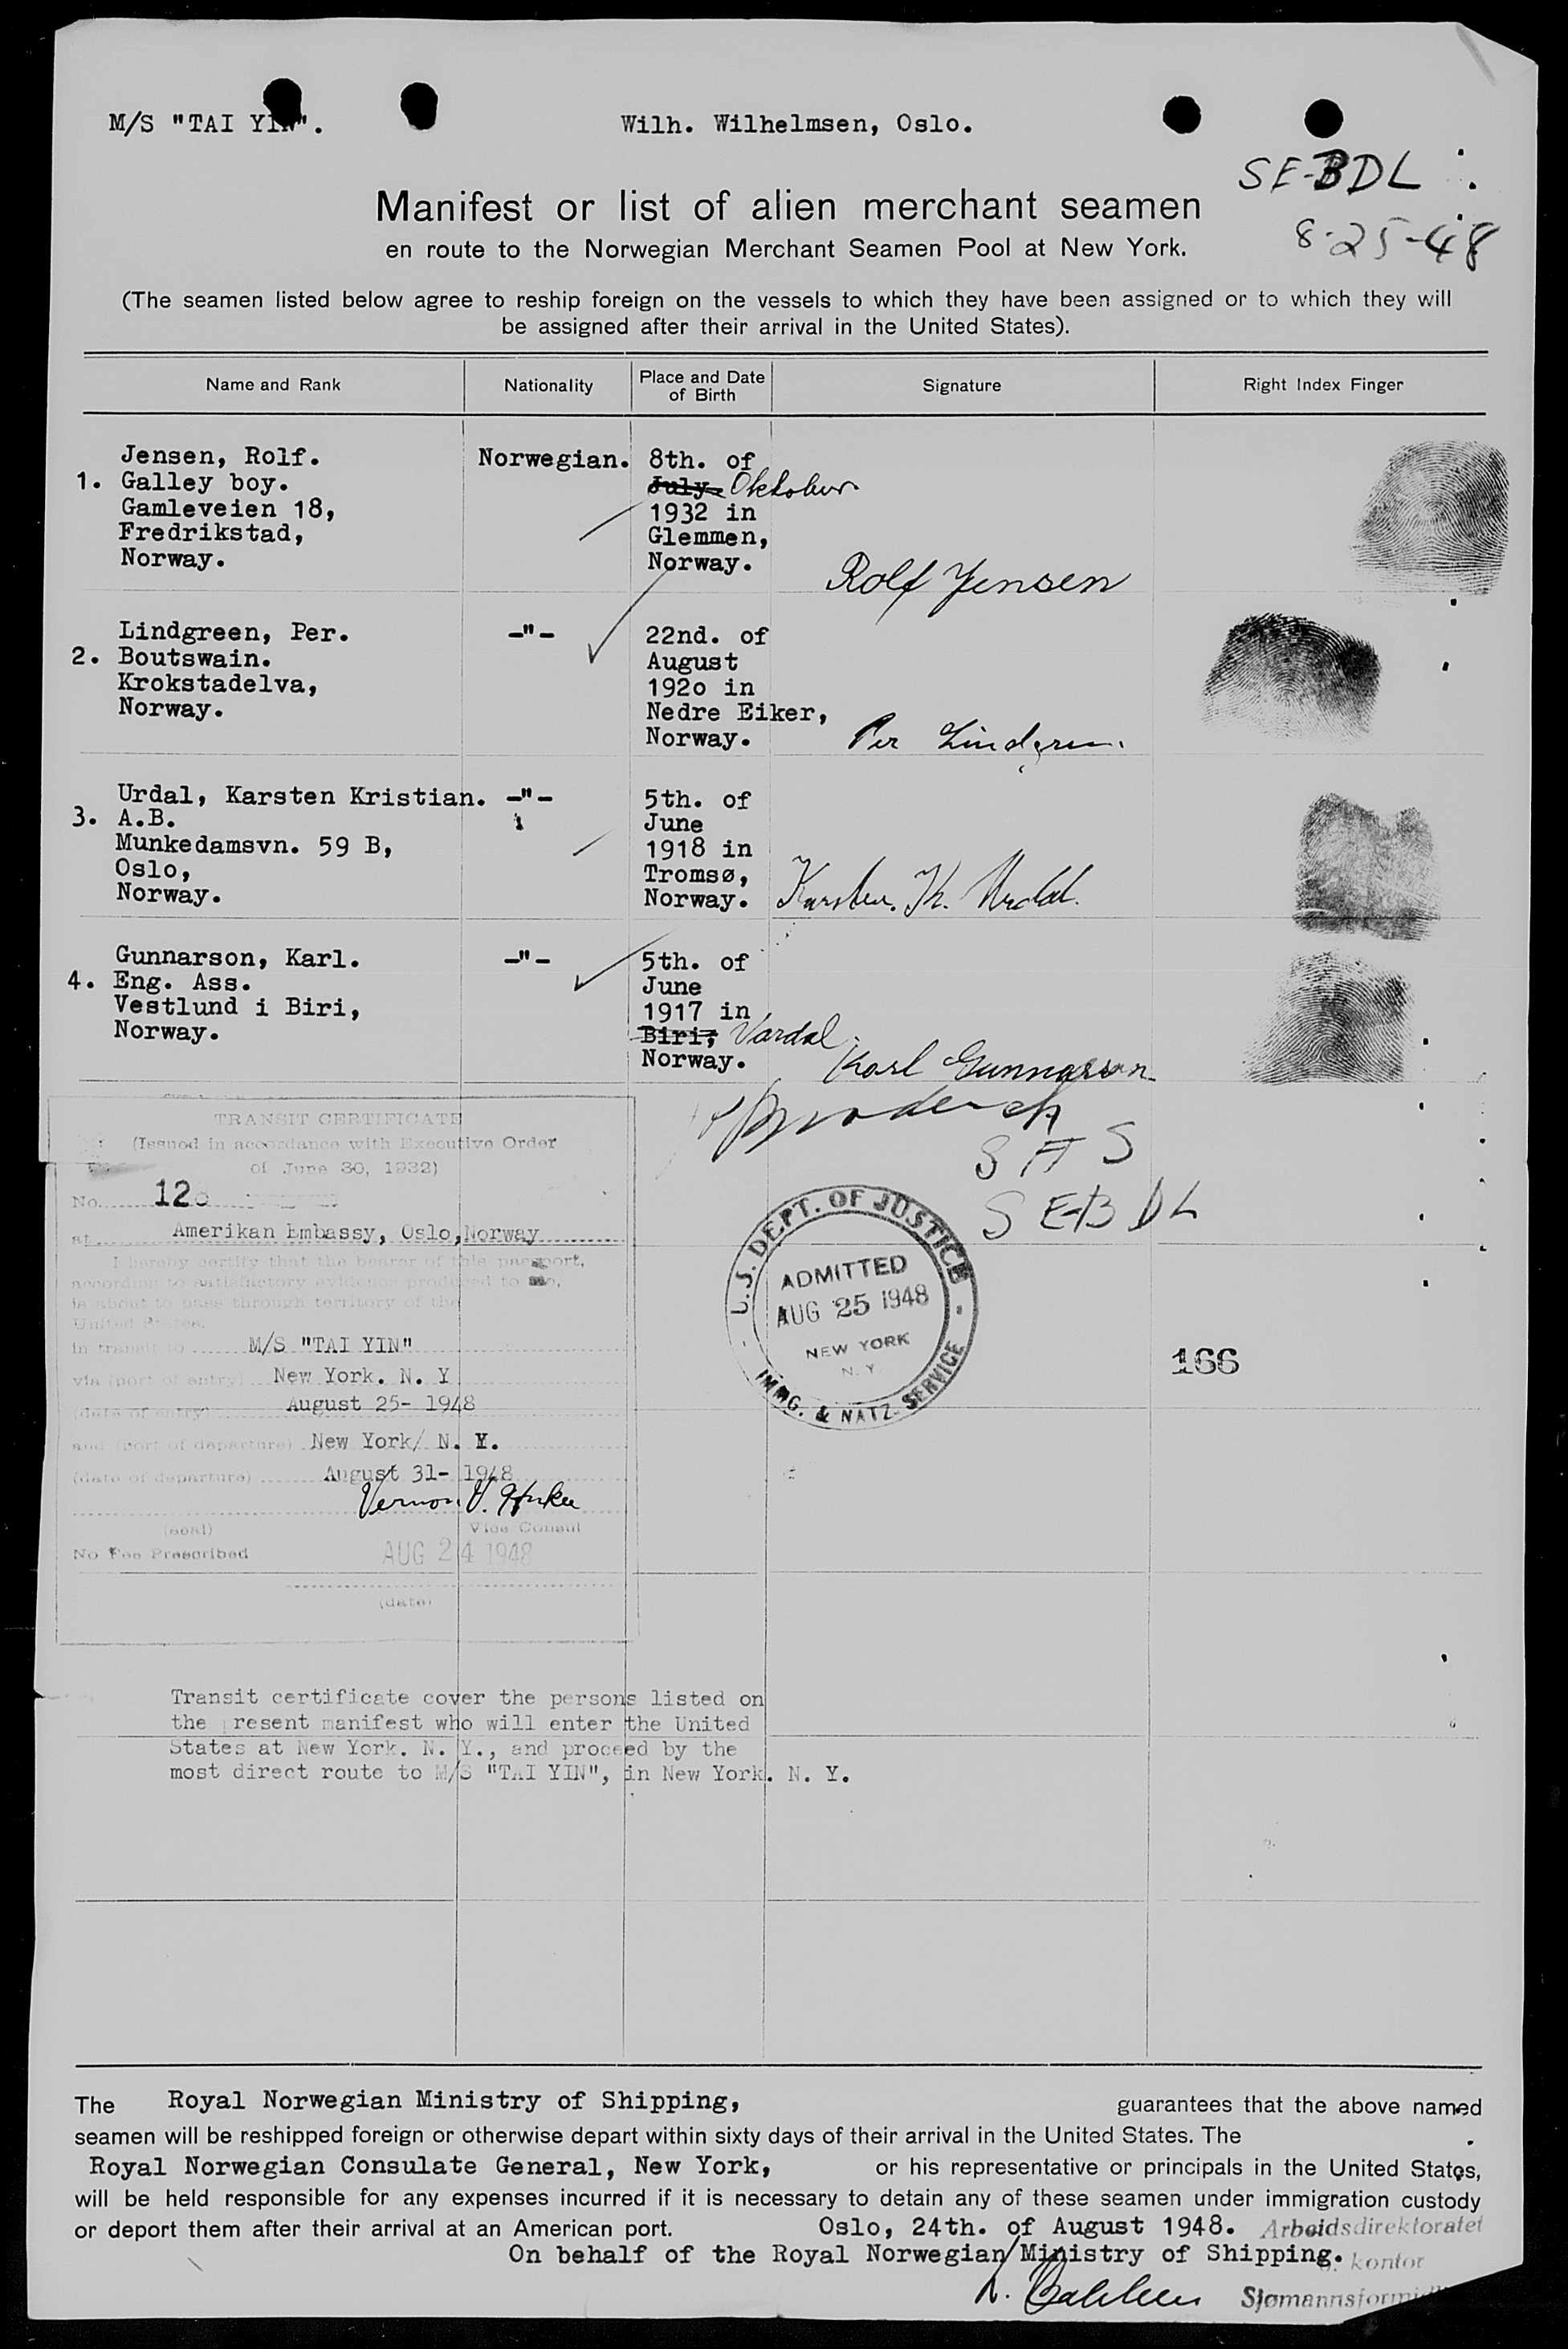 M/S "TAI YIN". Wilh. Wilhelmsen, Oslo.
SE-BDL
8-25-48
Manifest or list of alien merchant seamen
en route to the Norwegian Merchant Seamen Pool at New York.
(The seamen listed below agree to reship foreign on the vessels to which they have been assigned or to which they will
be assigned after their arrival in the United States).
Name and Rank Nationality Place and Date of Birth Signature Right Index Finger
Jensen, Rolf. Norwegian. 8th. of
1. Galley boy. July. Oktober
Gamleveien 18, 1932 in
Fredrikstad, Glemmen,
Norway. Norway. Rolf Jensen
Lindgreen, Per. -"- 22nd. of
2. Boutswain. August
Krokstadelva, 192o in
Norway. Nedre Eiker,
Norway. Per Lindgren.
Urdal, Karsten Kristian. -"- 5th. of
3. A.B. June
Munkedamsvn. 59 B, 1918 in
Oslo, Tromsø,
Norway. Norway. Karsten. Kr. Urdal.
Gunnarson, Karl. -"- 5th. of
4. Eng. Ass. June
Vestlund i Biri, 1917 in
Norway. Biri, Vardal.
Norway. Karl Gunnarson
SAS
SE-BDL
TRANSIT CERTIFICATE
(Issued in accordance with Executive Order
of June 30, 1932)
No. 12o
at Amerikan Embassy, Oslo, Norway
I hereby certify that the bearer of this passport,
according to satisfactory evidence produced to me,
is about to pass through territory of the
United States.
in transit to M/S "TAI YIN"
via (port of entry) New York. N. Y
(date of entry) August 25- 1948
and (port of departure) New York/ N. Y.
(date of departure) August 31- 1948
Vernon V.
(seal) Vice Consul
No Fee Prescribed AUG 24 1948
(date)
U.S. DEPT. OF JUSTICE
ADMITTED
AUG 25 1948
NEW YORK
N. Y.
IMMG. & NATZ. SERVICE
166
Transit certificate cover the persons listed on
the present manifest who will enter the United
States at New York. N. Y., and proceed by the
most direct route to M/S "TAI YIN", in New York. N. Y.
The Royal Norwegian Ministry of Shipping, guarantees that the above named
seamen will be reshipped foreign or otherwise depart within sixty days of their arrival in the United States. The
Royal Norwegian Consulate General, New York, or his representative or principals in the United States,
will be held responsible for any expenses incurred if it is necessary to detain any of these seamen under immigration custody
or deport them after their arrival at an American port. Oslo, 24th. of August 1948. Arbeidsdirektoratet
On behalf of the Royal Norwegian Ministry of Shipping. kontor
Sjømannsformi